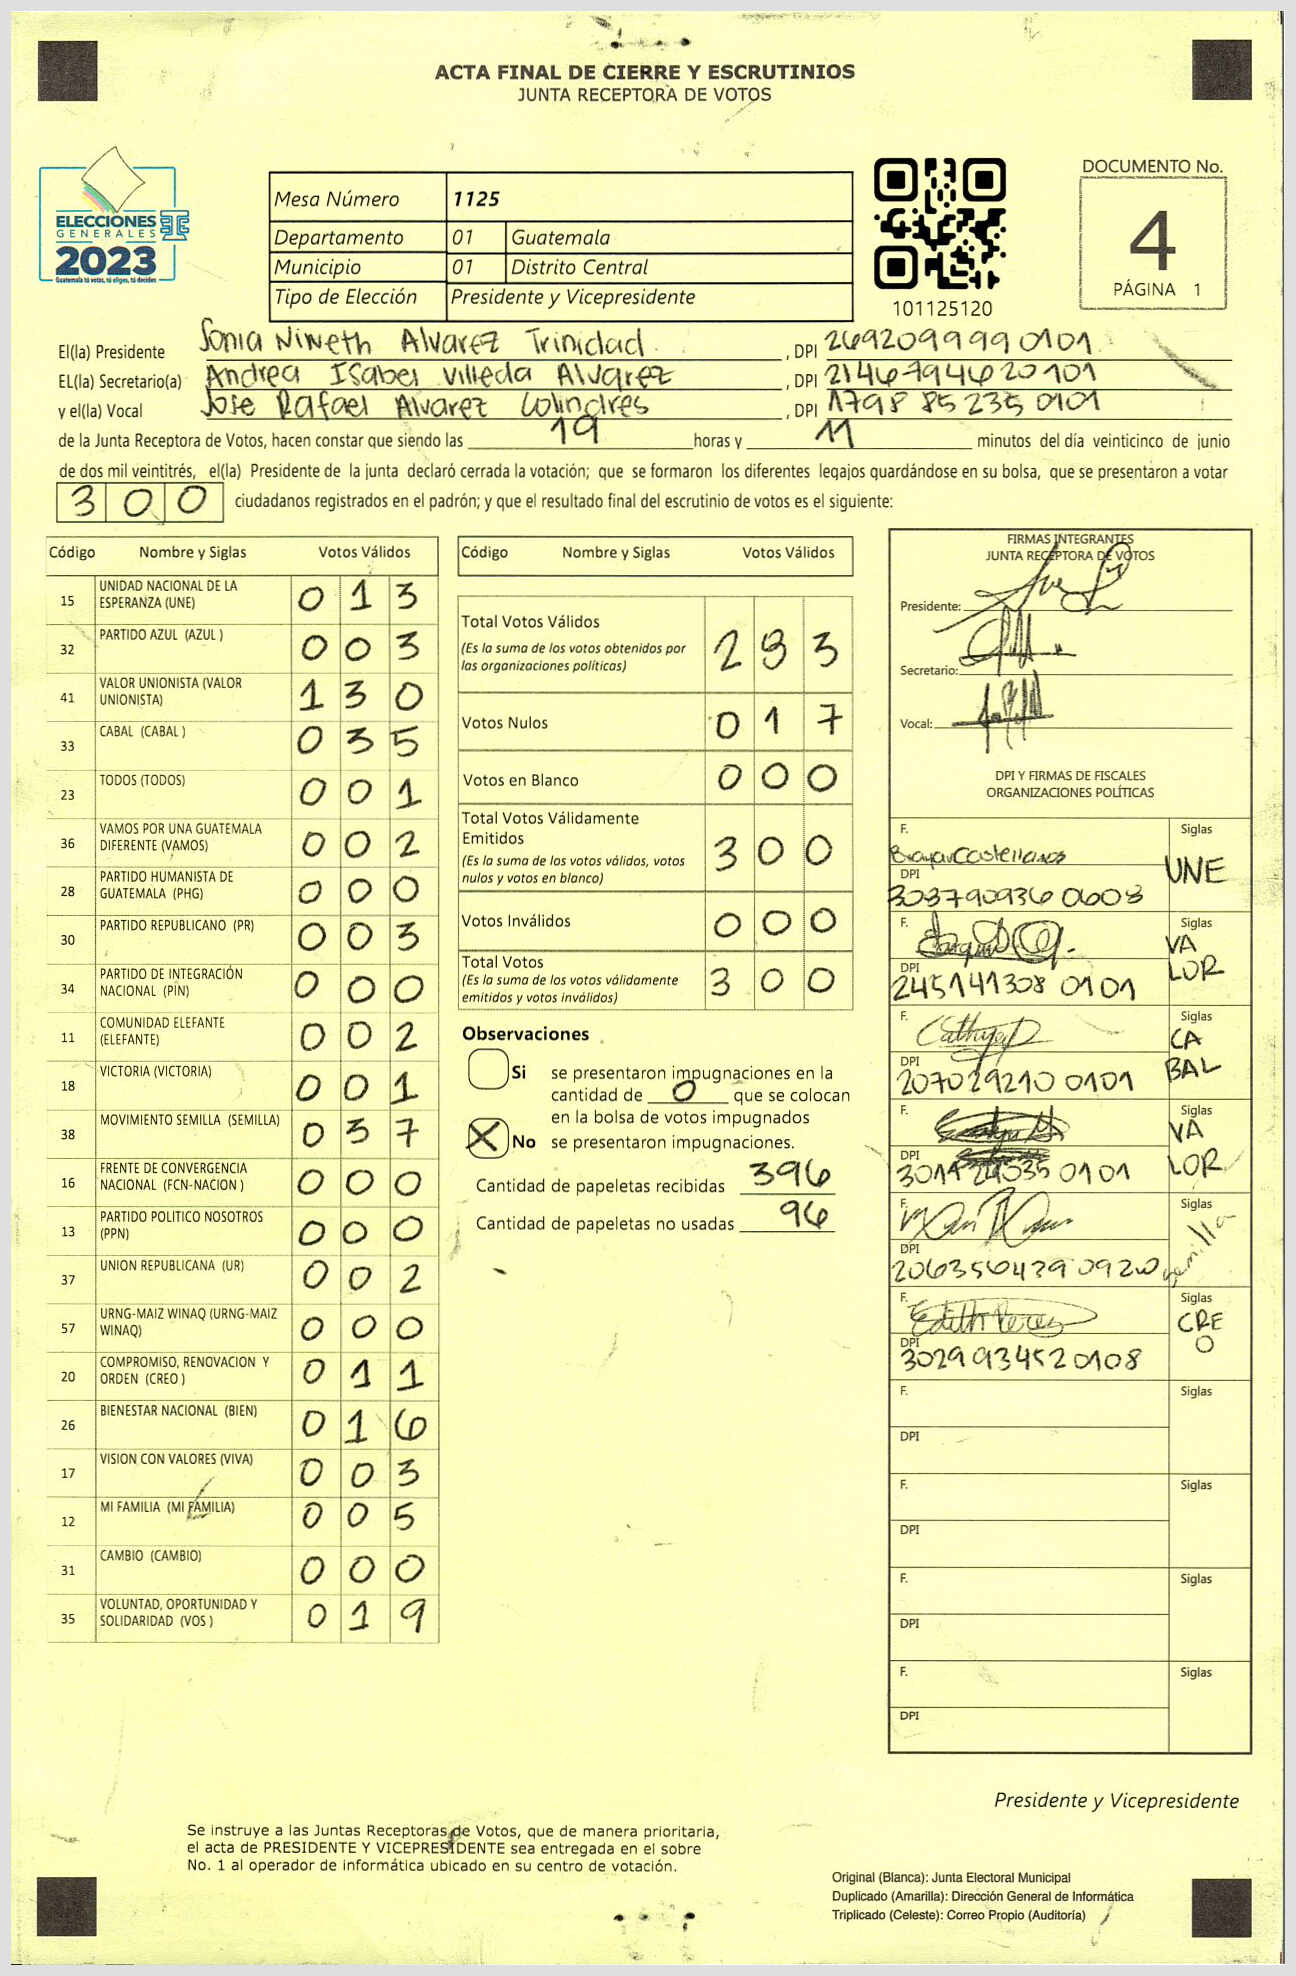 ACTA FINAL DE CIERRE Y ESCRUTINIOS
JUNTA RECEPTORA DE VOTOS
ELECCIONES
GENERALES
2023
Guatemala tú votas, tú eliges, tú decides
Mesa Número 1125
Departamento 01 Guatemala
Municipio 01 Distrito Central
Tipo de Elección Presidente y Vicepresidente
101125120
DOCUMENTO No.
4
PÁGINA 1
El(la) Presidente Sonia Nineth Alvarez Trinidad, DPI 2692099990101
EL(la) Secretario(a) Andrea Isabel Villeda Alvarez, DPI 2146794620101
y el(la) Vocal Jose Rafael Alvarez Colindres, DPI 1798 85235 0101
de la Junta Receptora de Votos, hacen constar que siendo las 19 horas y 11 minutos del día veinticinco de junio
de dos mil veintitrés, el(la) Presidente de la junta declaró cerrada la votación; que se formaron los diferentes legajos guardándose en su bolsa, que se presentaron a votar
300 ciudadanos registrados en el padrón; y que el resultado final del escrutinio de votos es el siguiente:
Código Nombre y Siglas Votos Válidos
15 UNIDAD NACIONAL DE LA ESPERANZA (UNE) 0 1 3
32 PARTIDO AZUL (AZUL ) 0 0 3
41 VALOR UNIONISTA (VALOR UNIONISTA) 1 3 0
33 CABAL (CABAL ) 0 3 5
23 TODOS (TODOS) 0 0 1
36 VAMOS POR UNA GUATEMALA DIFERENTE (VAMOS) 0 0 2
28 PARTIDO HUMANISTA DE GUATEMALA (PHG) 0 0 0
30 PARTIDO REPUBLICANO (PR) 0 0 3
34 PARTIDO DE INTEGRACIÓN NACIONAL (PIN) 0 0 0
11 COMUNIDAD ELEFANTE (ELEFANTE) 0 0 2
18 VICTORIA (VICTORIA) 0 0 1
38 MOVIMIENTO SEMILLA (SEMILLA) 0 37
16 FRENTE DE CONVERGENCIA NACIONAL (FCN-NACION ) 0 0 0
13 PARTIDO POLITICO NOSOTROS (PPN) 0 0 0
37 UNION REPUBLICANA (UR) 0 0 2
57 URNG-MAIZ WINAQ (URNG-MAIZ WINAQ) 0 0 0
20 COMPROMISO, RENOVACION Y ORDEN (CREO ) 0 1 1
26 BIENESTAR NACIONAL (BIEN) 0 1 6
17 VISION CON VALORES (VIVA) 0 0 3
12 MI FAMILIA (MI FAMILIA) 0 0 5
31 CAMBIO (CAMBIO) 0 0 0
35 VOLUNTAD, OPORTUNIDAD Y SOLIDARIDAD (VOS ) 0 1 9
Código Nombre y Siglas Votos Válidos
Total Votos Válidos 2 8 3
(Es la suma de los votos obtenidos por
las organizaciones políticas)
Votos Nulos 0 1 7
Votos en Blanco 0 0 0
Total Votos Válidamente
Emitidos 3 0 0
(Es la suma de los votos válidos, votos
nulos y votos en blanco)
Votos Inválidos 0 0 0
Total Votos 3 0 0
(Es la suma de los votos válidamente
emitidos y votos inválidos)
Observaciones
Si se presentaron impugnaciones en la
cantidad de 0 que se colocan
en la bolsa de votos impugnados
X No se presentaron impugnaciones.
Cantidad de papeletas recibidas 396
Cantidad de papeletas no usadas 96
FIRMAS INTEGRANTES
JUNTA RECEPTORA DE VOTOS
Presidente:
Secretario:
Vocal:
DPI Y FIRMAS DE FISCALES
ORGANIZACIONES POLÍTICAS
F. Brayan Castellanos Siglas UNE
DPI 3037909360608
F. Siglas VA
LOR
DPI 245141308 0101
F. Siglas CA
BAL
DPI 207029210 0101
F. Siglas VA
LOR
DPI 0101
F. Siglas Semilla
DPI
F. Edith Perez Siglas CRE
O
DPI 3029934520108
F. Siglas
DPI
F. Siglas
DPI
F. Siglas
DPI
F. Siglas
DPI
Presidente y Vicepresidente
Se instruye a las Juntas Receptoras de Votos, que de manera prioritaria,
el acta de PRESIDENTE Y VICEPRESIDENTE sea entregada en el sobre
No. 1 al operador de informática ubicado en su centro de votación.
Original (Blanca): Junta Electoral Municipal
Duplicado (Amarilla): Dirección General de Informática
Triplicado (Celeste): Correo Propio (Auditoría)